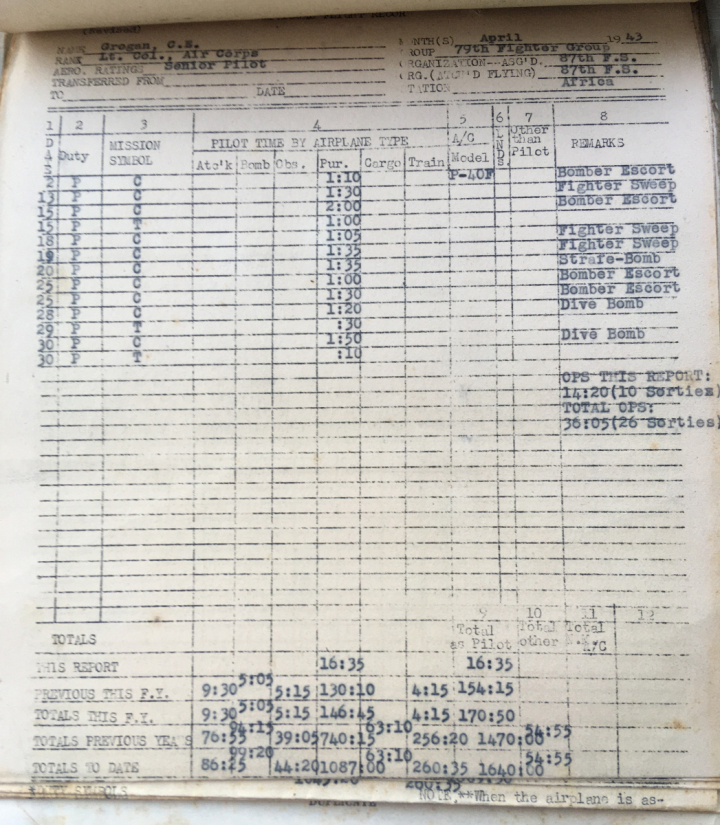 (Revised)
NAME Grogan, C.E.
RANK Lt. Col., Air Corps
AERO. RATINGS Senior Pilot
TRANSFERRED FROM
TO DATE
NTH(S) April 1943
ROUP 79th Fighter Group
RGANIZATION--ASG'D. 87th F.S.
RG.(ATCH'D FLYING) 87th F.S.
TATION Africa
1 2 3 4 5 6 7 8
DATE Duty MISSION SYMBOL PILOT TIME BY AIRPLANE TYPE A/C Model LNDS Other than Pilot REMARKS
Atc'k Bomb Obs. Pur. Cargo Train
2 P C 1:10 P-40F Bomber Escort
13 P C 1:30 Fighter Sweep
15 P C 2:00 Bomber Escort
15 P T 1:00
18 P C 1:05 Fighter Sweep
19 P C 1:35 Fighter Sweep
20 P C 1:35 Strafe-Bomb
25 P C 1:00 Bomber Escort
25 P C 1:30 Bomber Escort
28 P C 1:20 Dive Bomb
29 P T :30
30 P C 1:50 Dive Bomb
30 P T :10
OPS THIS REPORT:
14:20(10 Sorties)
TOTAL OPS:
36:05(26 Sorties)
9 10 11 12
TOTALS Total as Pilot Total other Total A/C
THIS REPORT 16:35 16:35
PREVIOUS THIS F.Y. 9:30 5:05 5:15 130:10 4:15 154:15
TOTALS THIS F.Y. 9:30 5:05 5:15 146:45 4:15 170:50
TOTALS PREVIOUS YEA S 76:55 94:15 39:05 740:15 63:10 256:20 1470:00 54:55
TOTALS TO DATE 86:25 99:20 44:20 1087:00 63:10 260:35 1640:00 54:55
260:35
SYMBOLS DUPLICATE NOTE **When the airplane is as-